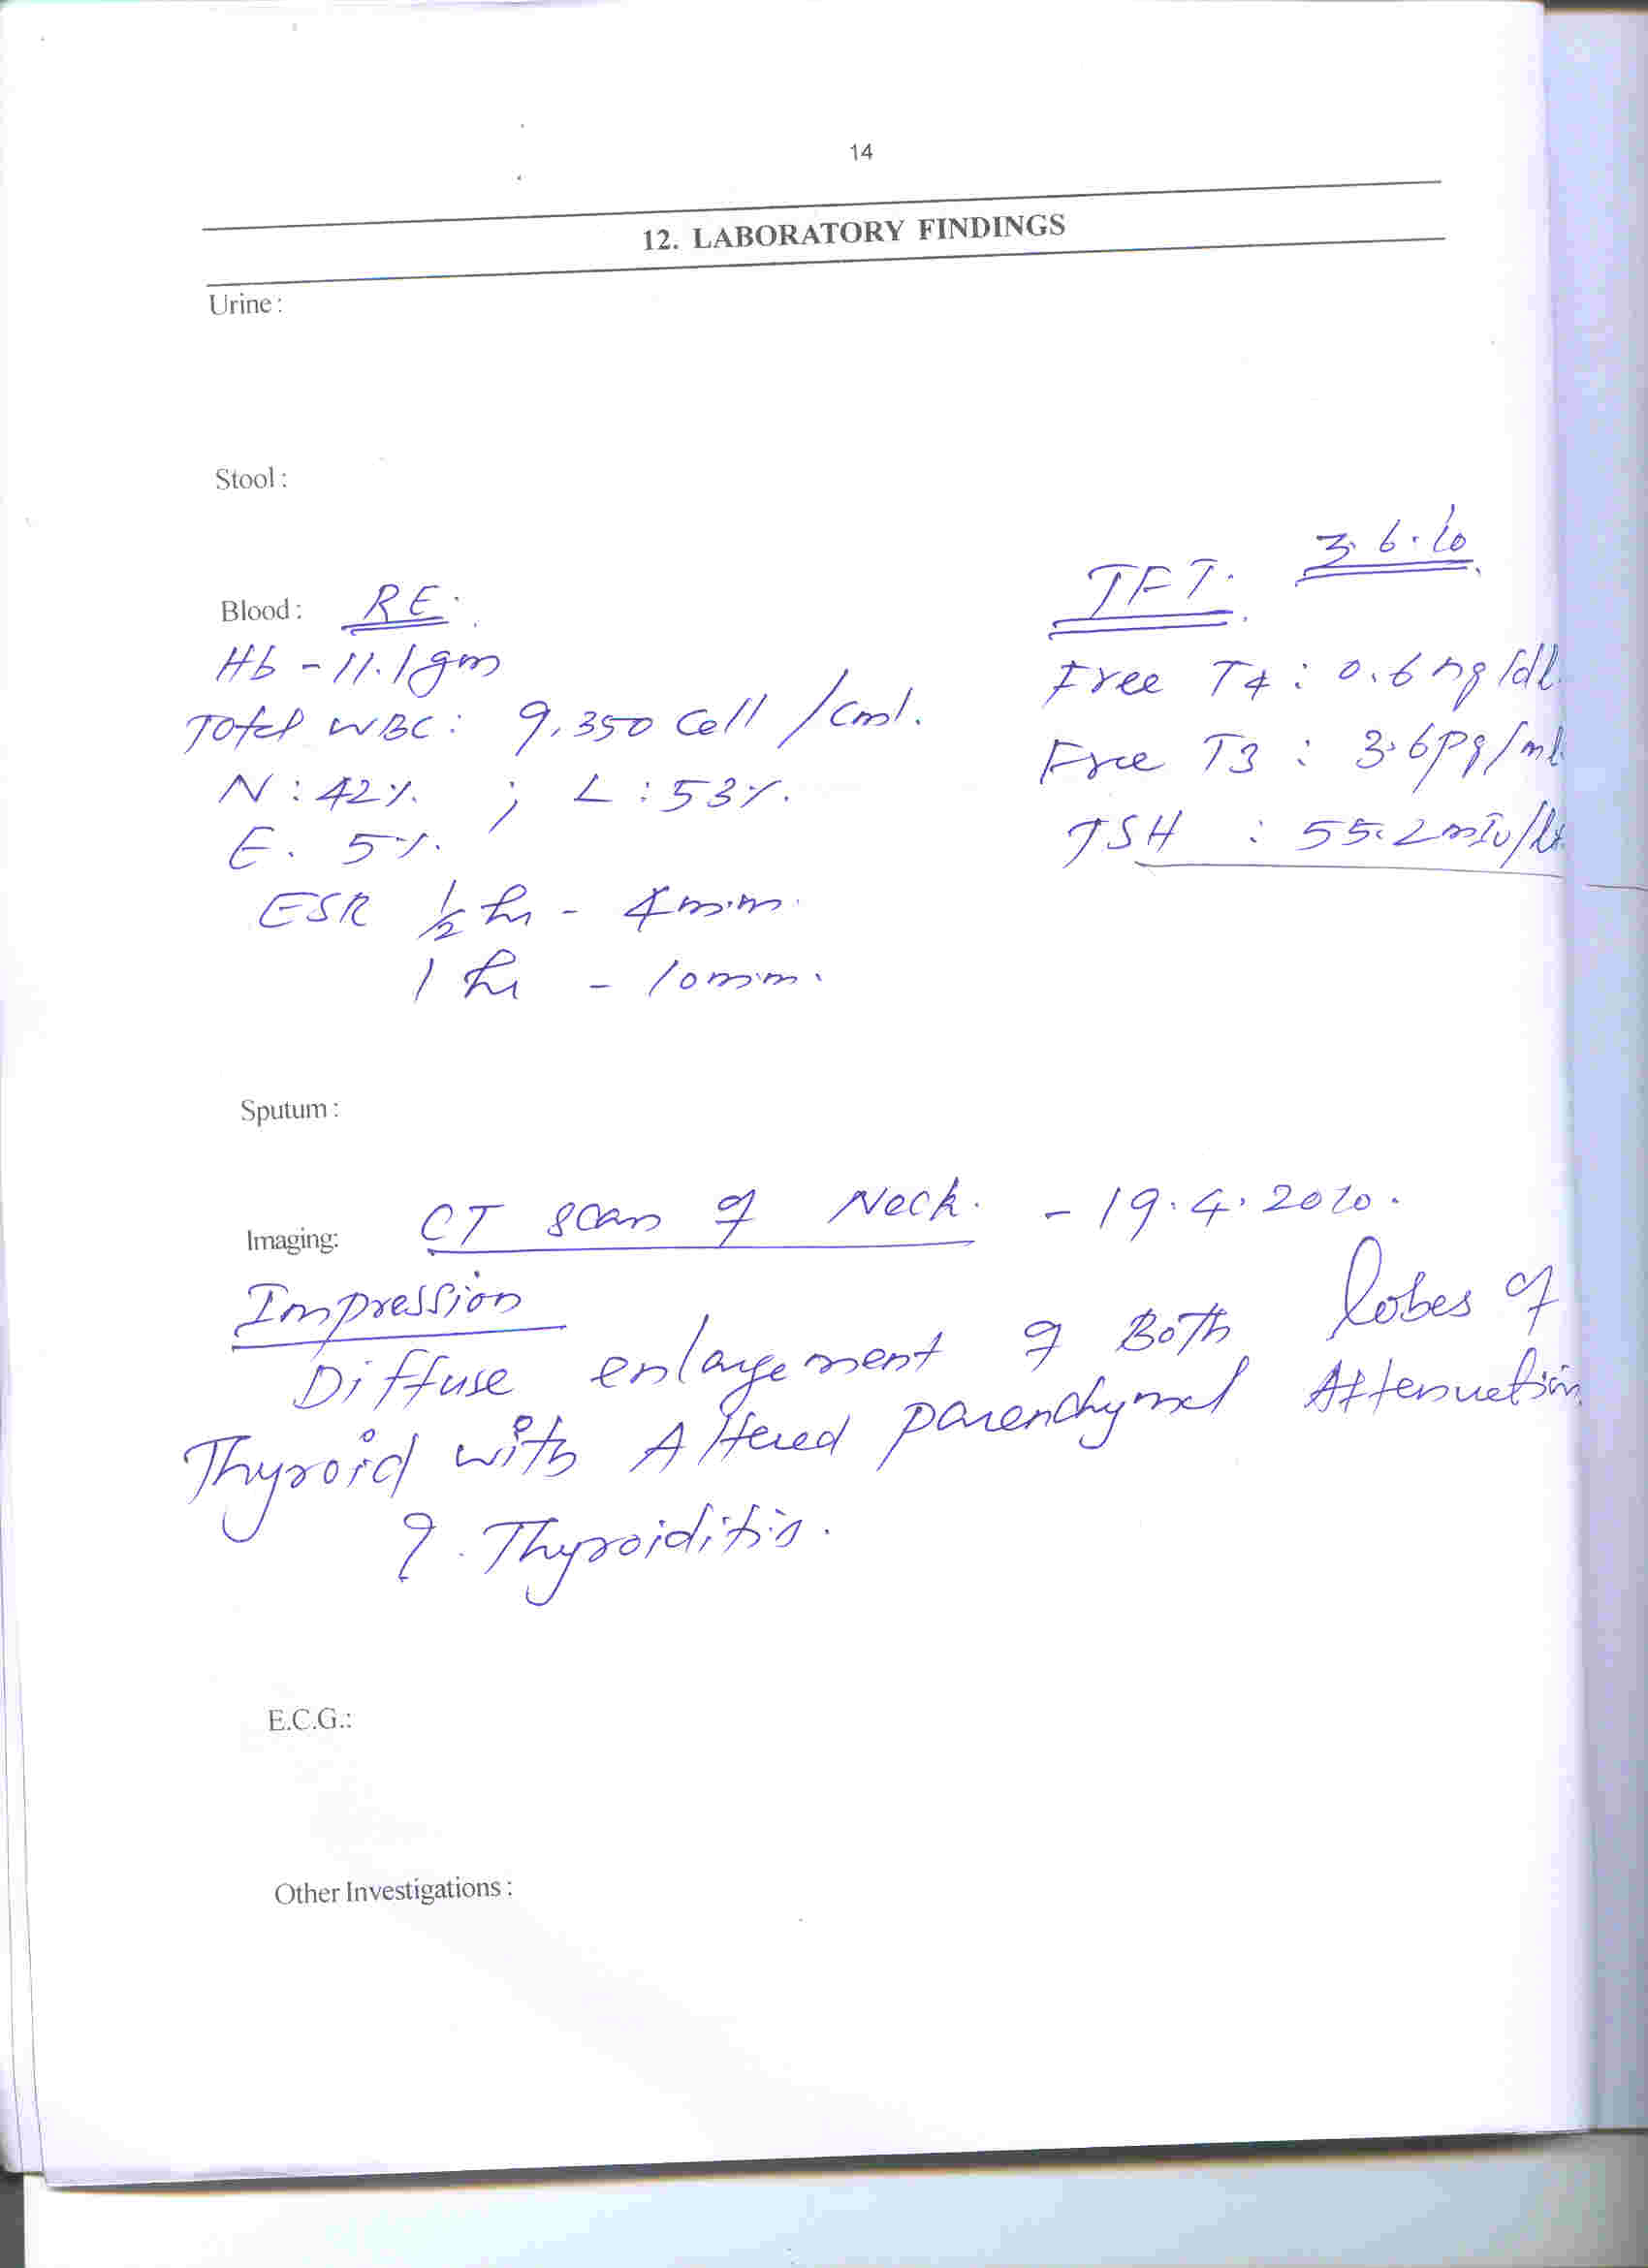 14
12. LABORATORY FINDINGS
Urine :
Stool :
Blood : RE.
Hb - 11.1gm
Total WBC : 9,350 Cell /Cml.
N : 42%. ; L : 53%.
E. 5%.
ESR ½ hr - 4mm.
1 hr - 10mm.
TFT. 3.6.10
Free T4 : 0.6 ng/dl
Free T3 : 3.6pg/ml
TSH : 55.2mIu/lt
Sputum :
Imaging: CT scan of Neck. - 19.4.2010.
Impression
Diffuse enlargement of Both lobes of
Thyroid with Altered parenchymal Attenuation
?. Thyroiditis.
E.C.G.:
Other Investigations :